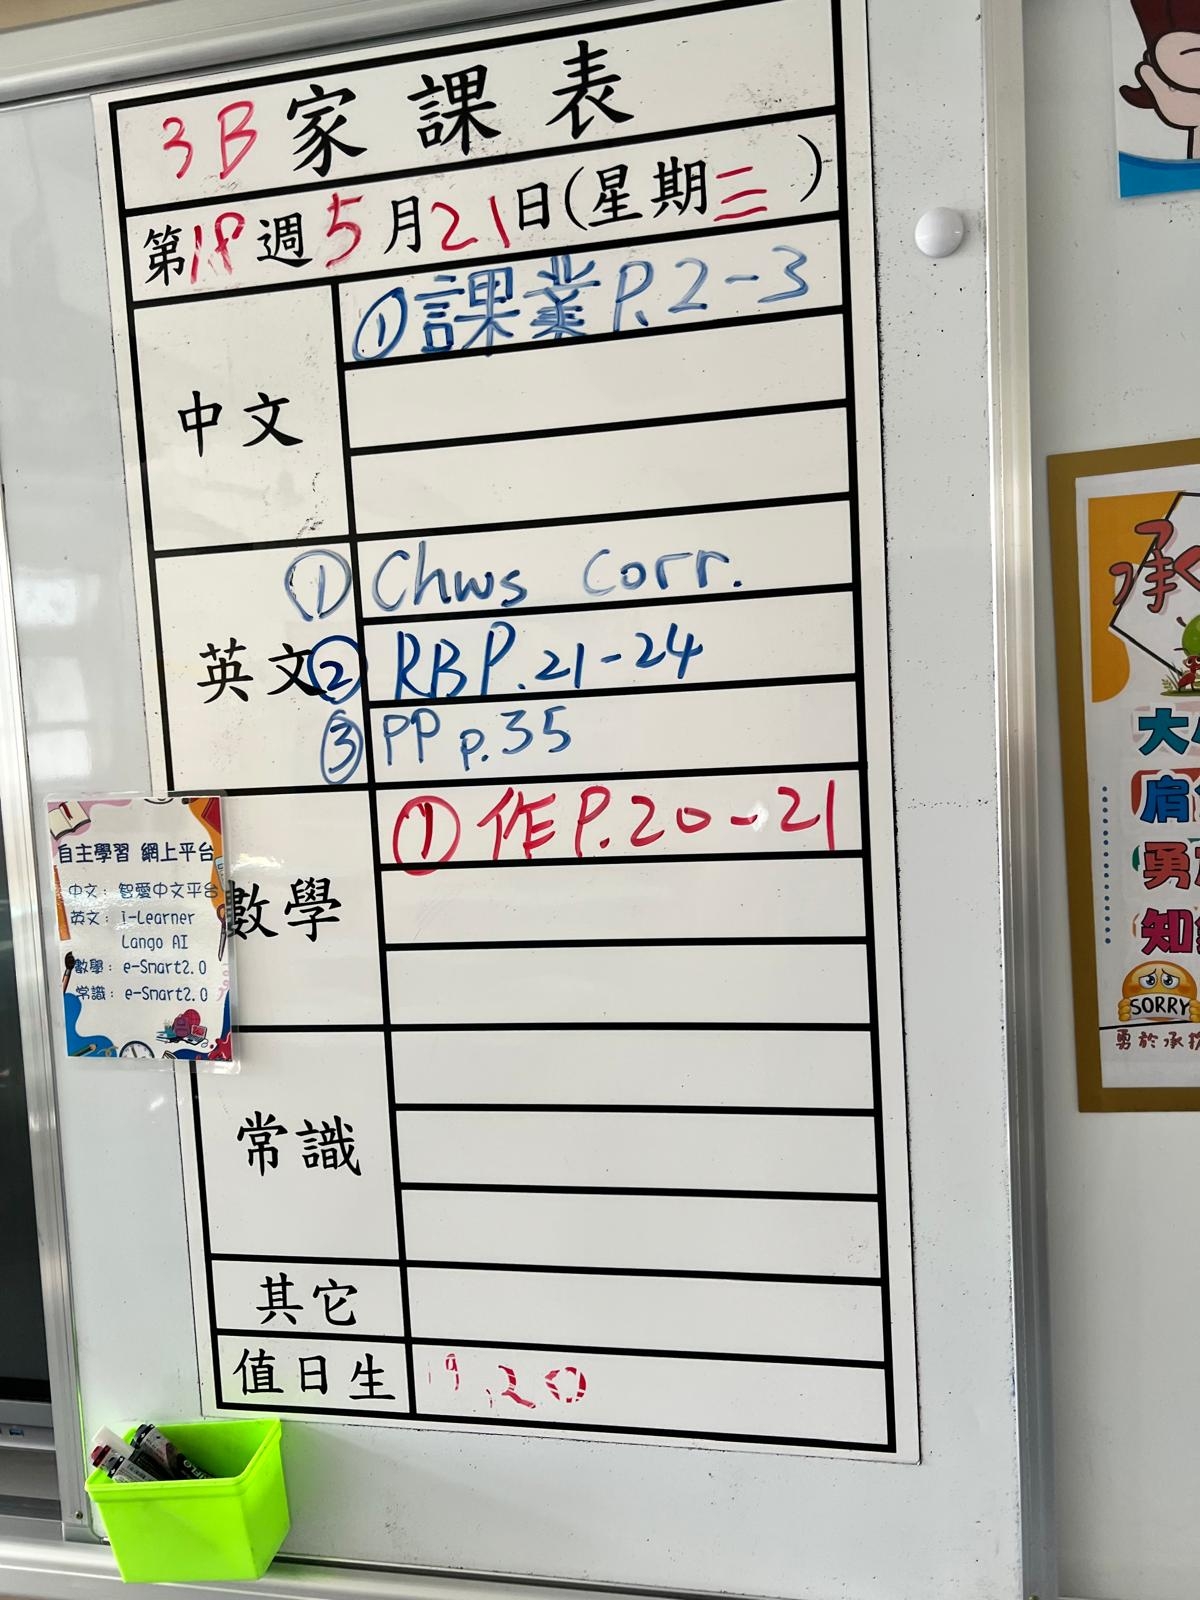 3B家課表
第18週5月21日(星期三)
中文
①課業P.2-3
英文
①Chws Corr.
②RB P.21-24
③PP p.35
數學
①作P.20-21
常識
其它
值日生
19,20
自主學習 網上平台
中文：智愛中文平台
英文：i-Learner
Lango AI
數學：e-Smart2.0
常識：e-Smart2.0
承
大
肩
勇
知
SORRY
勇於承